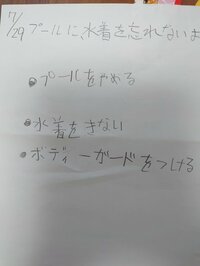 7/29 プールに水着を忘れない
・プールをやめる
・水着をきない
・ボディーガードをつける